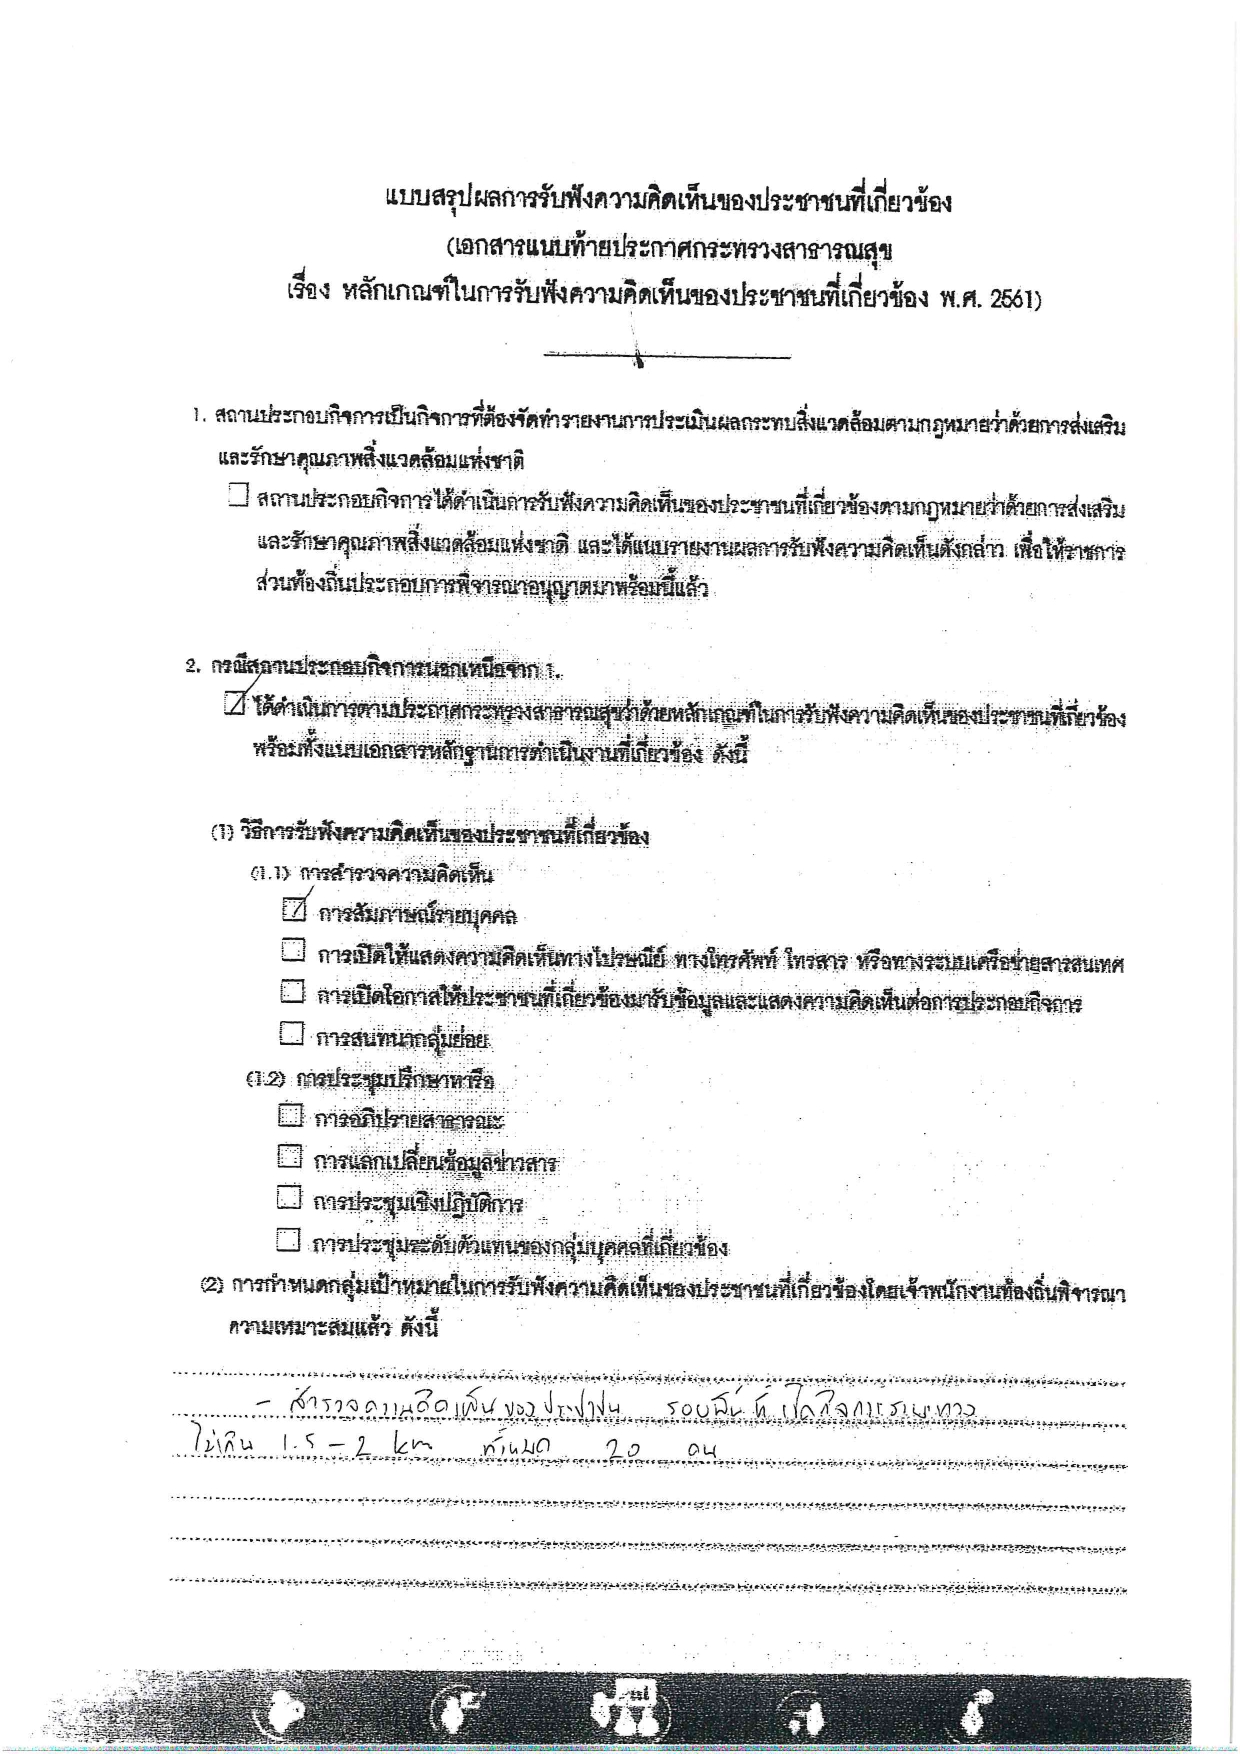 แบบสรุปผลการรับฟังความคิดเห็นของประชาชนที่เกี่ยวข้อง
(เอกสารแนบท้ายประกาศกระทรวงสาธารณสุข
เรื่อง หลักเกณฑ์ในการรับฟังความคิดเห็นของประชาชนที่เกี่ยวข้อง พ.ศ. 2561)
1. สถานประกอบกิจการเป็นกิจการที่ต้องจัดทำรายงานการประเมินผลกระทบสิ่งแวดล้อมตามกฎหมายว่าด้วยการส่งเสริม
และรักษาคุณภาพสิ่งแวดล้อมแห่งชาติ
☐ สถานประกอบกิจการได้ดำเนินการรับฟังความคิดเห็นของประชาชนที่เกี่ยวข้องตามกฎหมายว่าด้วยการส่งเสริม
และรักษาคุณภาพสิ่งแวดล้อมแห่งชาติ และได้แนบรายงานผลการรับฟังความคิดเห็นดังกล่าว เพื่อให้ราชการ
ส่วนท้องถิ่นประกอบการพิจารณาอนุญาตมาพร้อมนี้แล้ว
2. กรณีสถานประกอบกิจการนอกเหนือจาก 1.
☑ ได้ดำเนินการตามประกาศกระทรวงสาธารณสุขว่าด้วยหลักเกณฑ์ในการรับฟังความคิดเห็นของประชาชนที่เกี่ยวข้อง
พร้อมทั้งแนบเอกสารหลักฐานการดำเนินงานที่เกี่ยวข้อง ดังนี้
(1) วิธีการรับฟังความคิดเห็นของประชาชนที่เกี่ยวข้อง
(1.1) การสำรวจความคิดเห็น
☑ การสัมภาษณ์รายบุคคล
☐ การเปิดให้แสดงความคิดเห็นทางไปรษณีย์ ทางโทรศัพท์ โทรสาร หรือทางระบบเครือข่ายสารสนเทศ
☐ การเปิดโอกาสให้ประชาชนที่เกี่ยวข้องมารับข้อมูลและแสดงความคิดเห็นต่อการประกอบกิจการ
☐ การสนทนากลุ่มย่อย
(1.2) การประชุมปรึกษาหารือ
☐ การอภิปรายสาธารณะ
☐ การแลกเปลี่ยนข้อมูลข่าวสาร
☐ การประชุมเชิงปฏิบัติการ
☐ การประชุมระดับตัวแทนของกลุ่มบุคคลที่เกี่ยวข้อง
(2) การกำหนดกลุ่มเป้าหมายในการรับฟังความคิดเห็นของประชาชนที่เกี่ยวข้องโดยเจ้าพนักงานท้องถิ่นพิจารณา
ความเหมาะสมแล้ว ดังนี้
- สำรวจความคิดเห็นของประชาชน รอบพื้นที่ เปิดกิจการระยะทาง
ไม่เกิน 1.5 - 2 km ทั้งหมด 20 คน